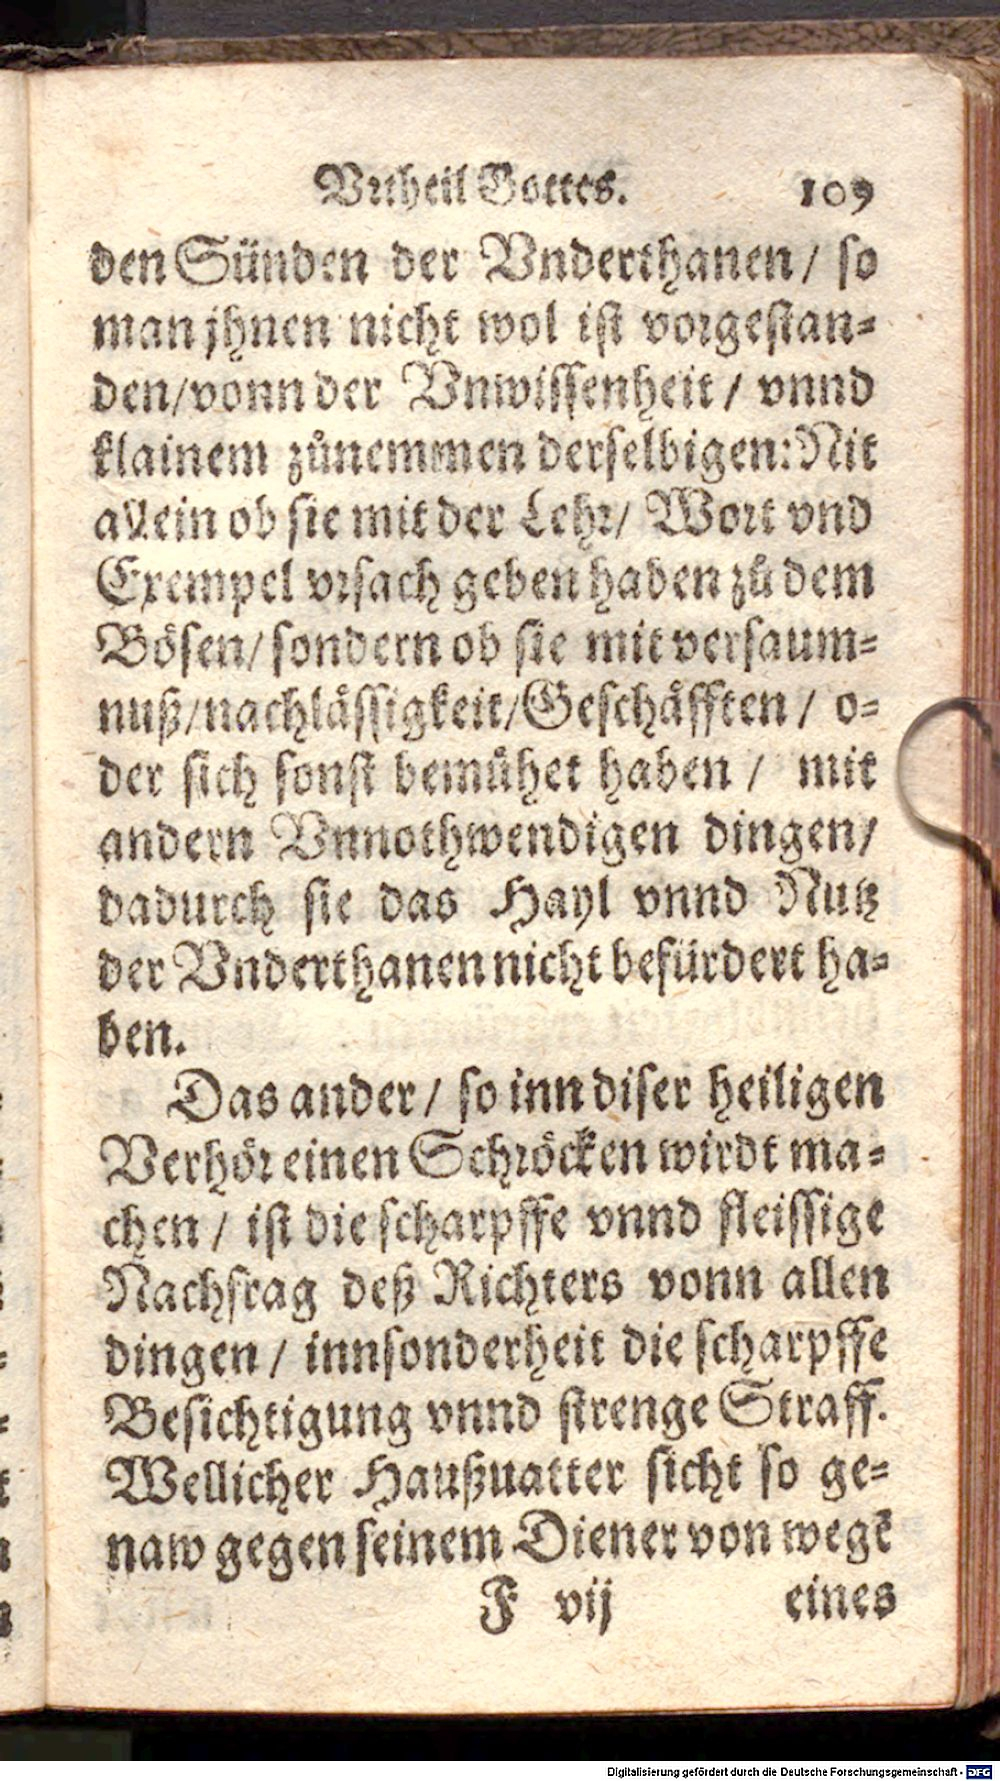 Vrtheil Gottes. 109
den Sünden der Vnderthanen / so
man jhnen nicht wol ist vorgestan-
den/vonn der Vnwissenheit / vnnd
klainem zůnemmen derselbigen: Nit
allein ob sie mit der Lehr/ Wort vnd
Exempel vrsach geben haben zů dem
Bösen/ sondern ob sie mit versaum-
nuß/nachlässigkeit/Geschäfften / o-
der sich sonst bemühet haben / mit
andern Vnnothwendigen dingen/
dadurch sie das Hayl vnnd Nutz
der Vnderthanen nicht befürdert ha-
ben.
Das ander / so inn diser heiligen
Verhör einen Schröcken wirdt ma-
chen / ist die scharpffe vnnd fleissige
Nachfrag deß Richters vonn allen
dingen / innsonderheit die scharpffe
Besichtigung vnnd strenge Straff.
Wellicher Haußuatter sicht so ge-
naw gegen seinem Diener von wegē
F vij eines
Digitalisierung gefördert durch die Deutsche Forschungsgemeinschaft - DFG